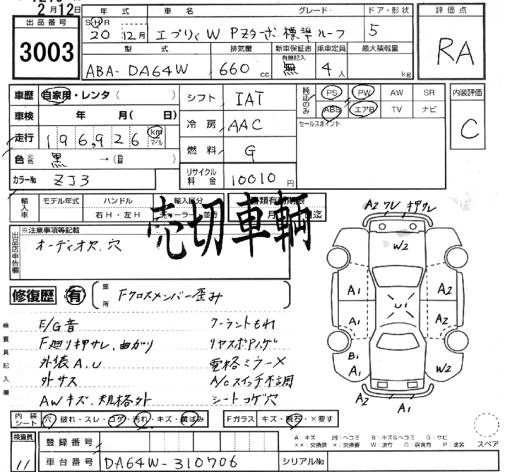 2月12日
年式 車名 グレード ドア・形状 評価点
出品番号
3003
S H R 20 12月 エブリィW PZターボ 標準ルーフ 5
RA
型式 排気量 新車保証書 乗車定員 最大積載量
有無記入
ABA-DA64W 660 cc 無 4人 kg
車歴 自家用・レンタ( )
シフト IAT
純正のみ PS PW AW SR
ABS エアB TV ナビ
内装評価
C
車検 年 月( 日)
冷房 AAC
セールスポイント
走行 196,926 km マイル
燃料 G
色 黒 →( )
カラーNo ZJ3
リサイクル料金 10010円
輸入車 モデル年式 ハンドル 輸入区分
右H・左H ディーラー・並行 月 迄
売切車輌
出品店申告欄
※注意事項等記載
オーディオ欠、穴
修復歴 有 箇所 Fクロスメンバー歪み
検査員記入欄
E/G音 クーラントもれ
F廻り押サレ、曲がり リヤスポノゲ
外装A.U 電格ミラー×
外サス A/Cスイッチ不調
AWキズ、規格外 シートコゲ穴
A2 ワレ 押サレ
W2
A1 A1 A2
U1
A1 A2
B1
A1 W2 A2
A2
内装シート 穴・破れ・スレ・コゲ・汚れ・キズ・黄ばみ Fガラス キズ・飛石・×要す
スペア
検査員
11
登録番号
車台番号 DA64W-310706 シリアルNo.